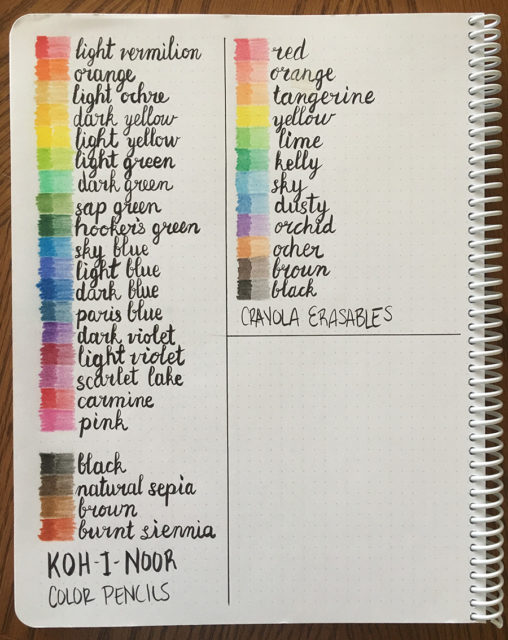 light vermilion
orange
light ochre
dark yellow
light yellow
light green
dark green
sap green
hooker's green
sky blue
light blue
dark blue
paris blue
dark violet
light violet
scarlet lake
carmine
pink
black
natural sepia
brown
burnt siennia
KOH-I-NOOR
COLOR PENCILS
red
orange
tangerine
yellow
lime
kelly
sky
dusty
orchid
ocher
brown
black
CRAYOLA ERASABLES